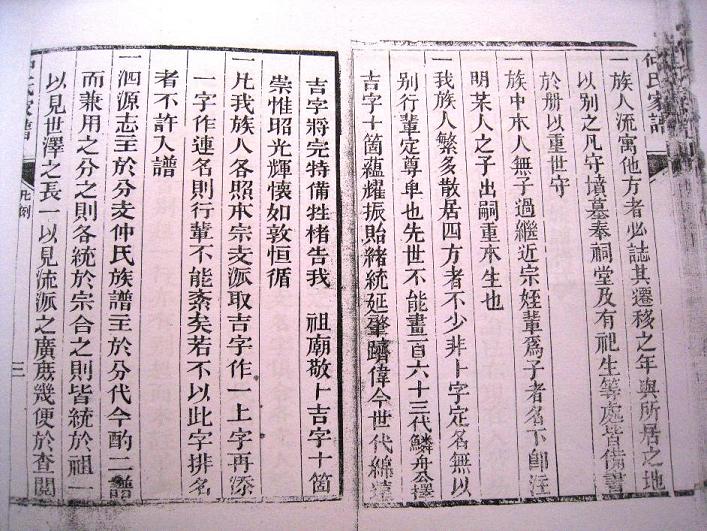 仲氏家譜
一族人流寓他方者必誌其遷移之年與所居之地
以別之凡守墳墓奉祠堂及有祀生等處皆備書
於册以重世守
一族中本人無子過繼近宗姪輩爲子者名下卽注
明某人之子出嗣重本生也
一我族人繁多散居四方者不少非卜字定名無以
别行輩定尊卑也先世不能畫一百六十三代鱗舟公擇
吉字十箇蘊燿振貽緒統延肇躋偉今世代綿遠
吉字將完特備牲楮告我 祖廟敬卜吉字十箇
崇惟昭光輝懷如敦恒循
一凡我族人各照本宗支派取吉字作一上字再添
一字作連名則行輩不能紊矣若不以此字排名
者不許入譜
一泗源志至於分支仲氏族譜至於分代今酌二譜
而兼用之分之則各統於宗合之則皆統於祖一
以見世澤之長一以見流派之廣庶幾便於查閱
氏家譜
凡例
三